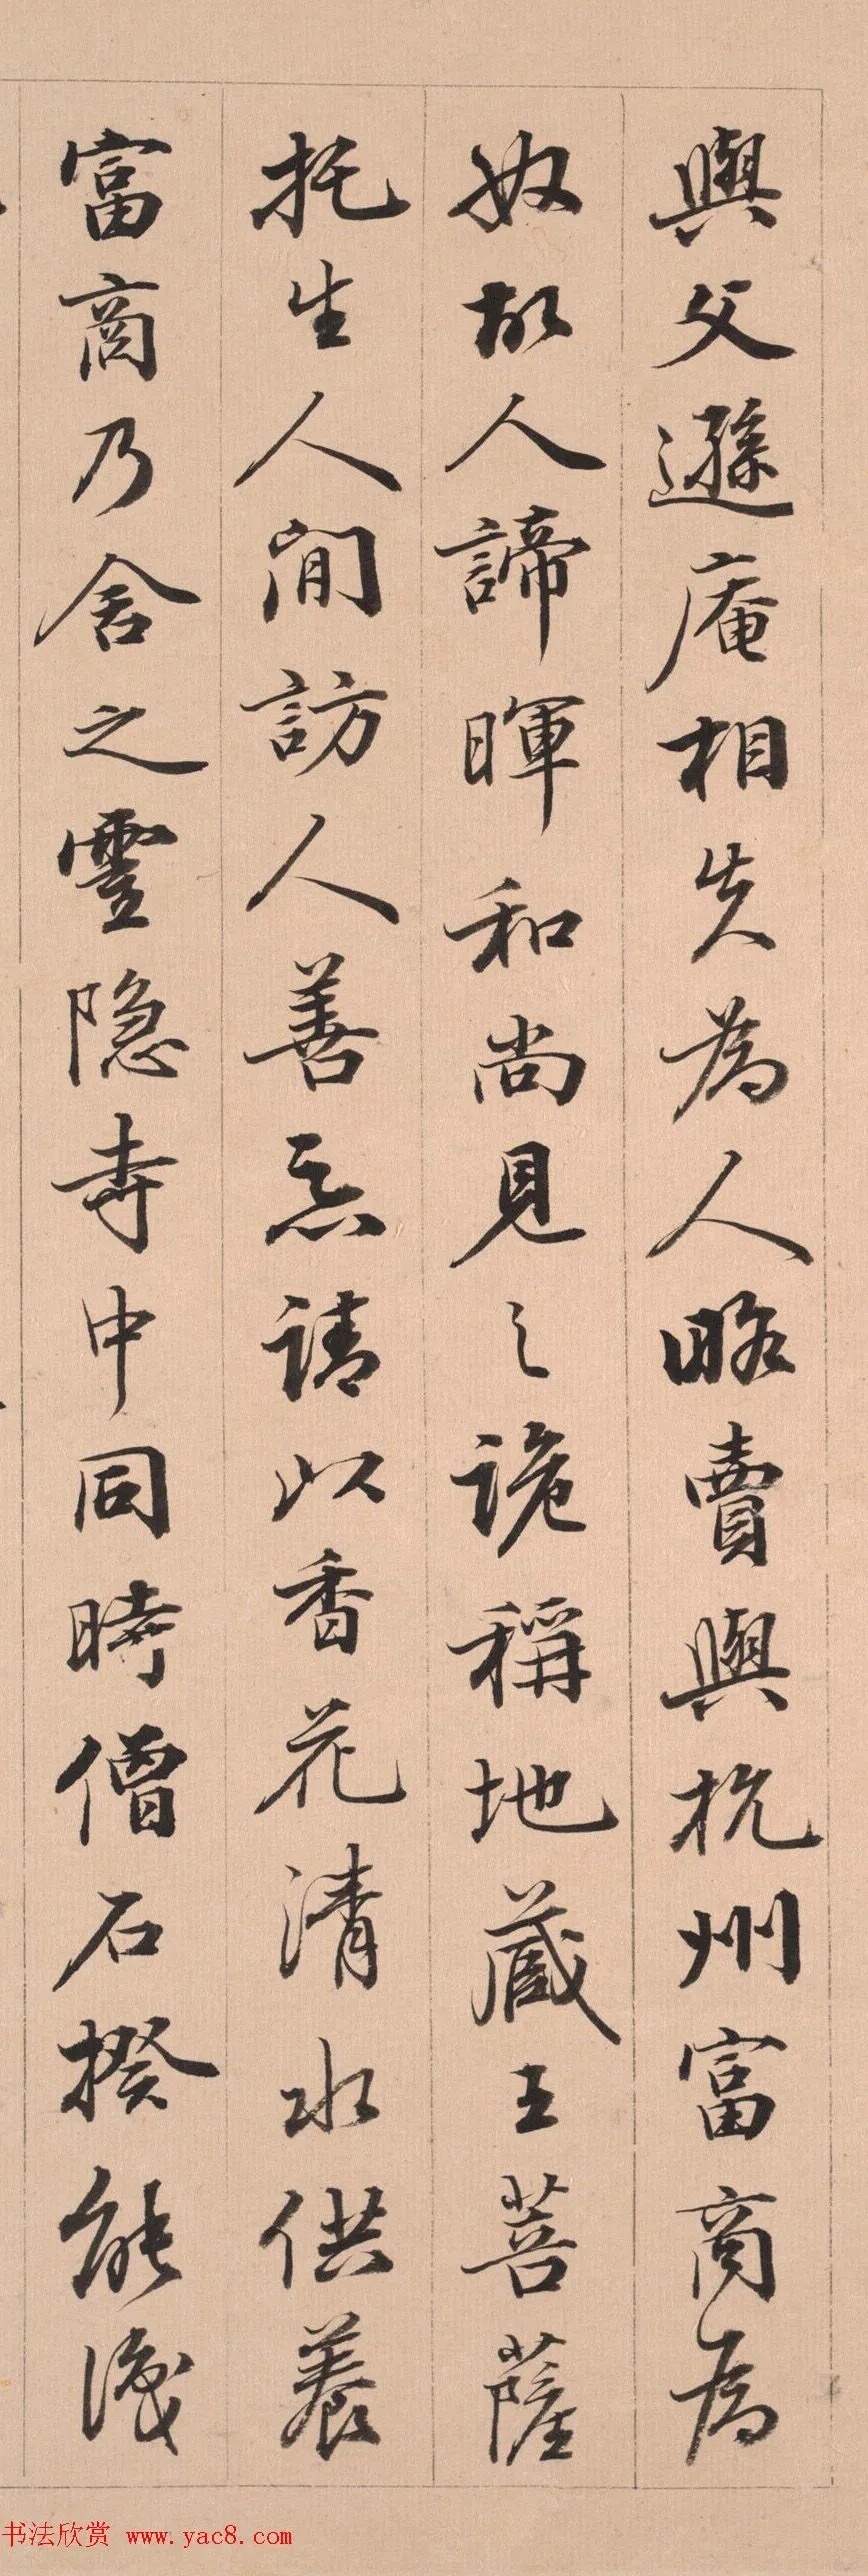 與父遜庵相失為人略賣與杭州富商為
奴故人諦暉和尚見之詭稱地蔵王菩薩
托生人間訪人善惡請以香花清水供養
富商乃舍之靈隐寺中同時僧石揆能識
书法欣赏 www.yac8.com